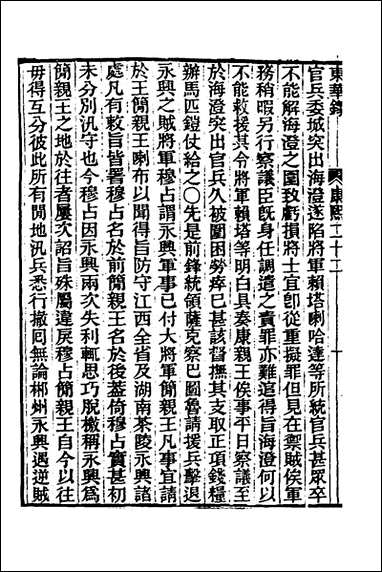 東華錄 康熙二十二
官兵委城突出海澄遂陷將軍賴塔喇哈達等所統官兵甚眾卒
不能解海澄之圍致虧損將士宜卽從重擬罪但見在禦賊俟軍
務稍暇另行察議臣旣身任調遣之責罪亦難逭得旨海澄何以
不能救援其令將軍賴塔等明白具奏康親王俟事平日察議至
於海澄突出官兵久被圍困勞瘁已甚該督撫其支取正項錢糧
辦馬匹鎧仗給之〇先是前鋒統領薩克察巴圖魯請援兵擊退
永興之賊將軍穆占謂永興軍事已付大將軍簡親王凡事宜請
於王簡親王喇布以聞得旨防守江西全省及湖南茶陵永興諸
處凡有敕旨皆署穆占名於前簡親王名於後蓋倚穆占實甚初
未分別汛守也今穆占因永興兩次失利輒思巧脫檄稱永興爲
簡親王之地於往者屢次詔旨殊屬違戾穆占簡親王自今以往
毋得互分彼此所有閒地汛兵悉行撤囘無論郴州永興遇逆賊